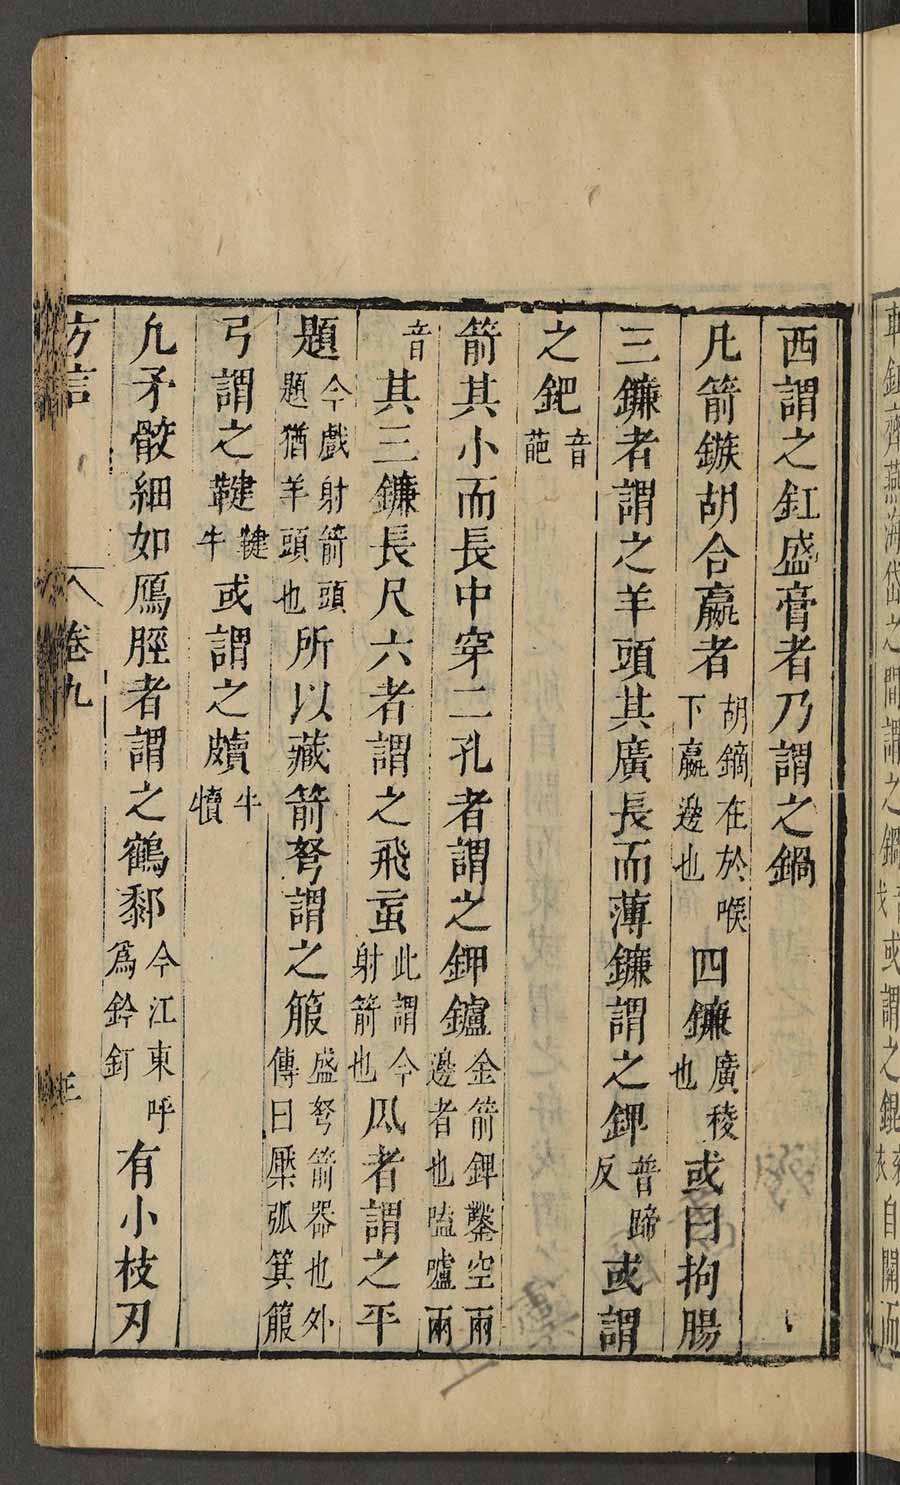 西謂之釭盛膏者乃謂之鍋
凡箭鏃胡合嬴者胡鏑在於喉下嬴邊也四鐮廣稜也或曰拘腸
三鐮者謂之羊頭其廣長而薄鐮謂之錍普蹄反或謂
之鈀音葩
箭其小而長中穿二孔者謂之鉀鑪金箭錍鑿空兩邊者也嗑嚧兩
音其三鐮長尺六者謂之飛䖟此謂今射箭也凡者謂之平
題今戲射箭頭題猶羊頭也所以藏箭弩謂之箙盛弩箭器也外傳曰檿弧箕箙
弓謂之鞬鞬牛或謂之皾牛犢
凡矛骹細如鴈脛者謂之鶴厀今江東呼爲鈐釘有小枝刃
方言
卷九
三
車釭齊燕海岱之間謂之鍋或謂之錕自關而